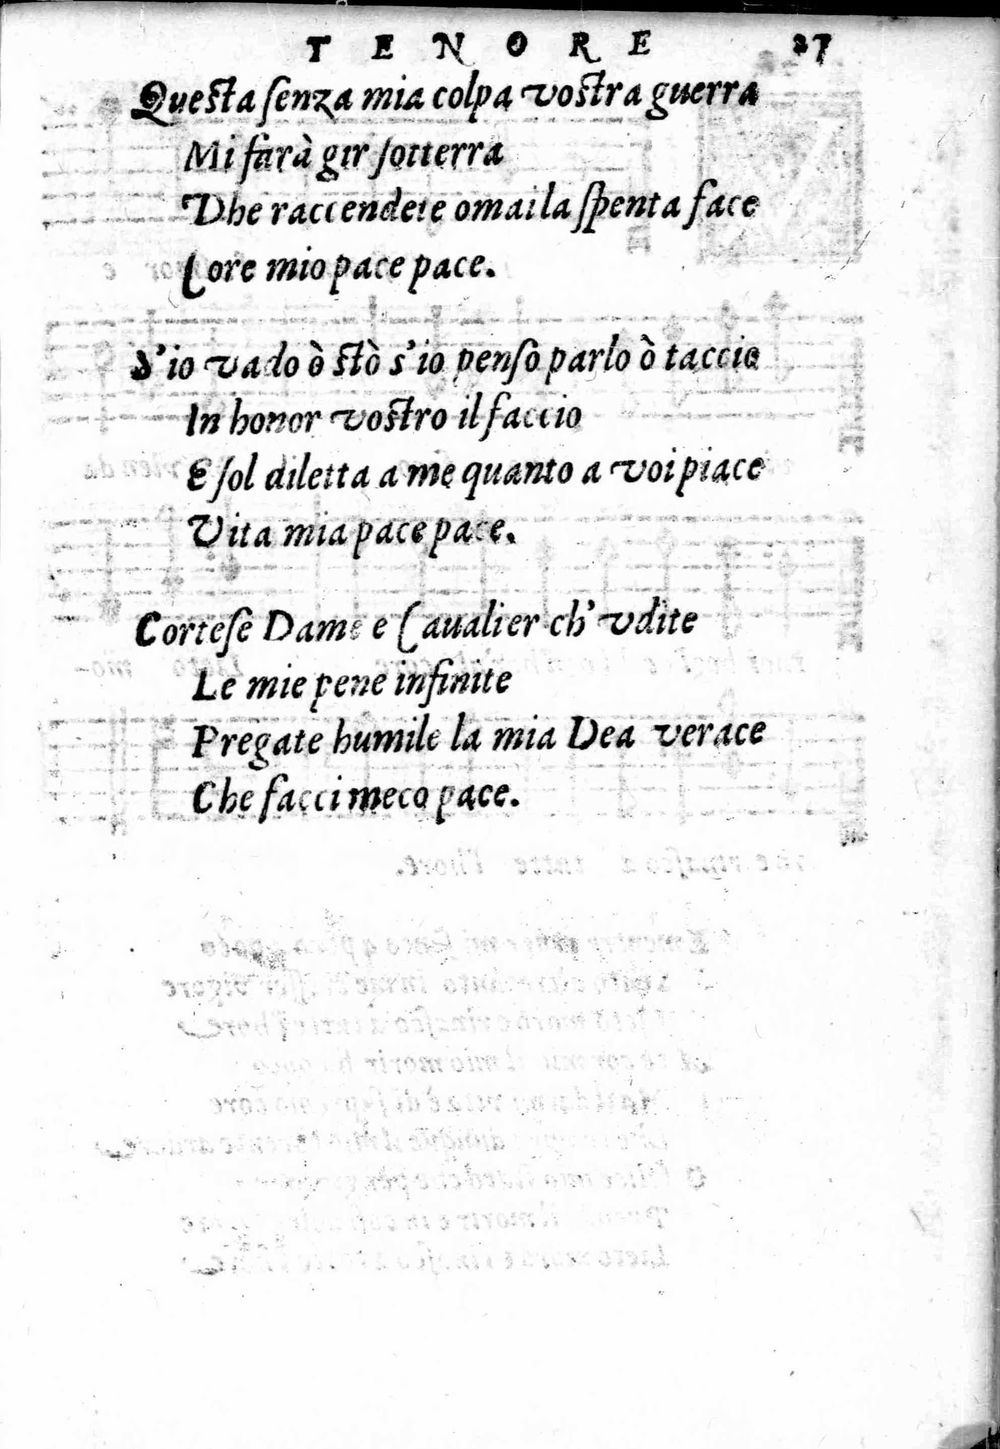 TENORE 27
Questa senza mia colpa vostra guerra
Mi farà gir sotterra
Dhe raccendete omai la spenta face
Core mio pace pace.
S'io vado ò stò s'io penso parlo ò taccio
In honor vostro il faccio
E sol diletta a me quanto a voi piace
Vita mia pace pace.
Cortese Dame e Caualier ch' vdite
Le mie pene infinite
Pregate humile la mia Dea verace
Che facci meco pace.